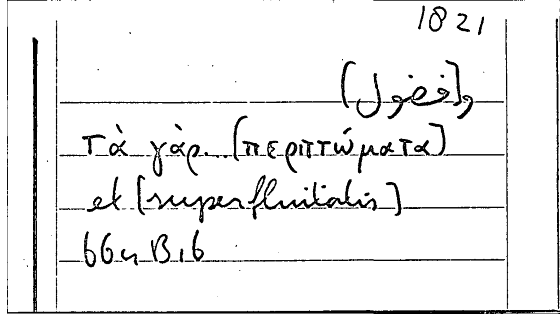 1821
و[فضول]
τὰ γὰρ...[περιττώματα]
et [superfluitatis]
664 B, 6